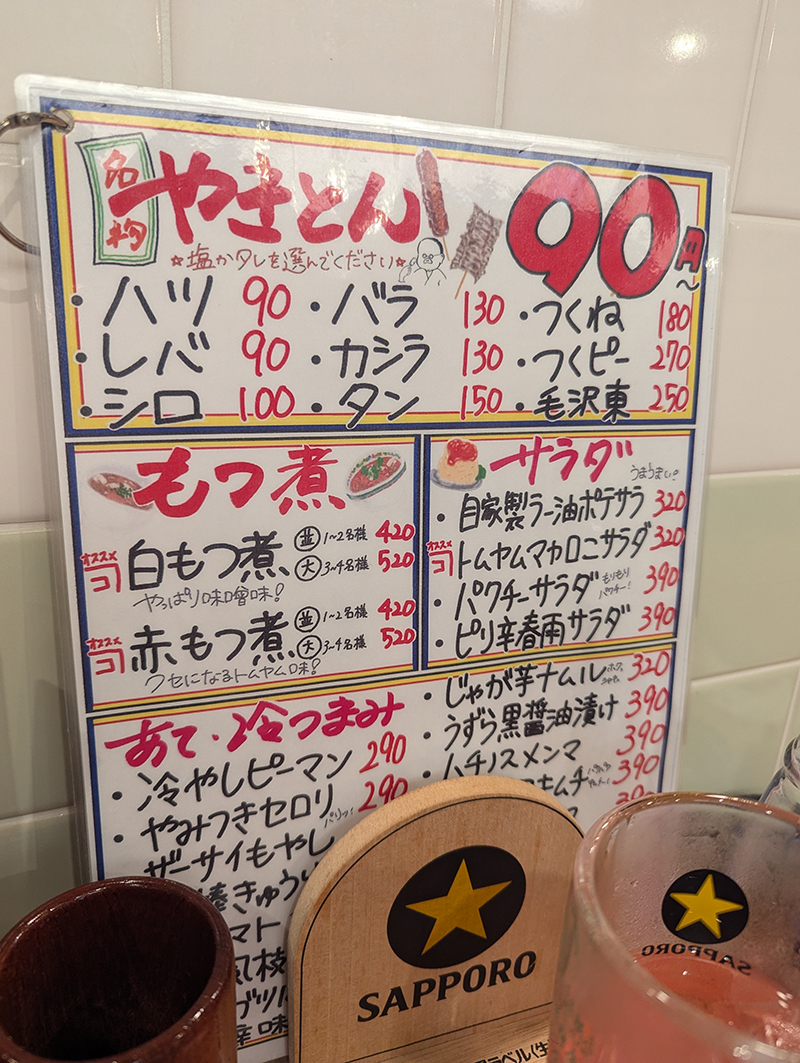 名物 やきとん 90円~
☆塩かタレを選んでください☆
・ハツ 90
・レバ 90
・シロ 100
・バラ 130
・カシラ 130
・タン 150
・つくね 180
・つくピー 270
・毛沢東 250
もつ煮
オススメ 白もつ煮 並 1~2名様 420
大 3~4名様 520
やっぱり味噌味!
オススメ 赤もつ煮 並 1~2名様 420
大 3~4名様 520
クセになるトムヤム味!
サラダ
うまうまい!
・自家製ラー油ポテサラ 320
オススメ トムヤムマカロニサラダ 320
・パクチーサラダ もりもりパクチー! 390
・ピリ辛春雨サラダ 390
あて・冷つまみ
・冷やしピーマン 290
・やみつきセロリ 290
パリッ!
ザーサイもやし
きゅう
マト
枝
・じゃが芋ナムル 320
・うずら黒醤油漬け 390
・ハチノスメンマ 390
キムチ 390
SAPPORO
SAPPORO